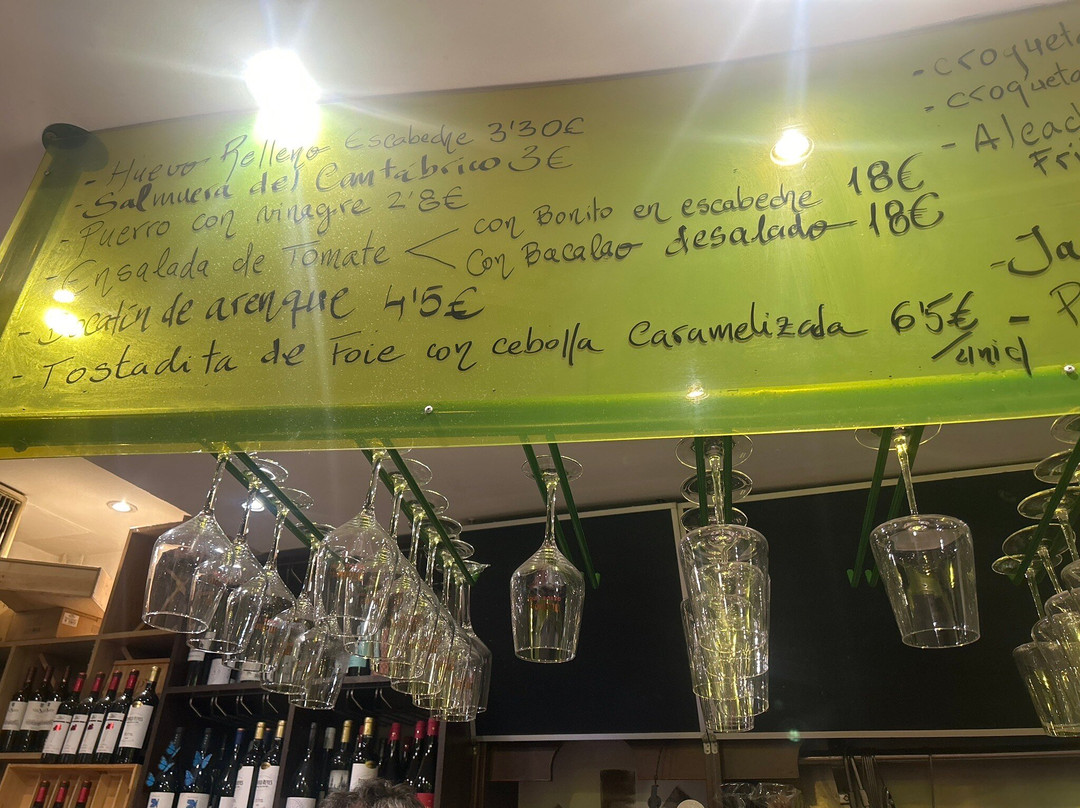 - Huevo Relleno Escabeche 3'30€
- Salmuera del Cantábrico 3€
- Puerro con vinagre 2'8€
- Ensalada de Tomate < con Bonito en escabeche 18€
con Bacalao desalado 18€
- Bocatín de arenque 4'5€
- Tostadita de Foie con cebolla Caramelizada 6'5€
/unid
- croquet
- croqueta
- Alcac
Fri
- Ja
- P